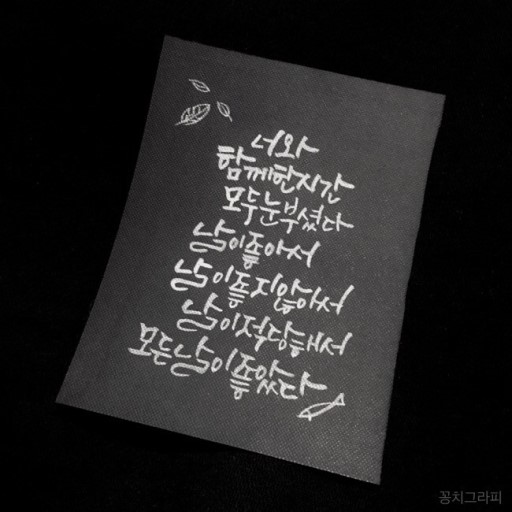 너와
함께한시간
모두눈부셨다
날이좋아서
날이좋지않아서
날이적당해서
모든날이좋았다
꽁치그라피